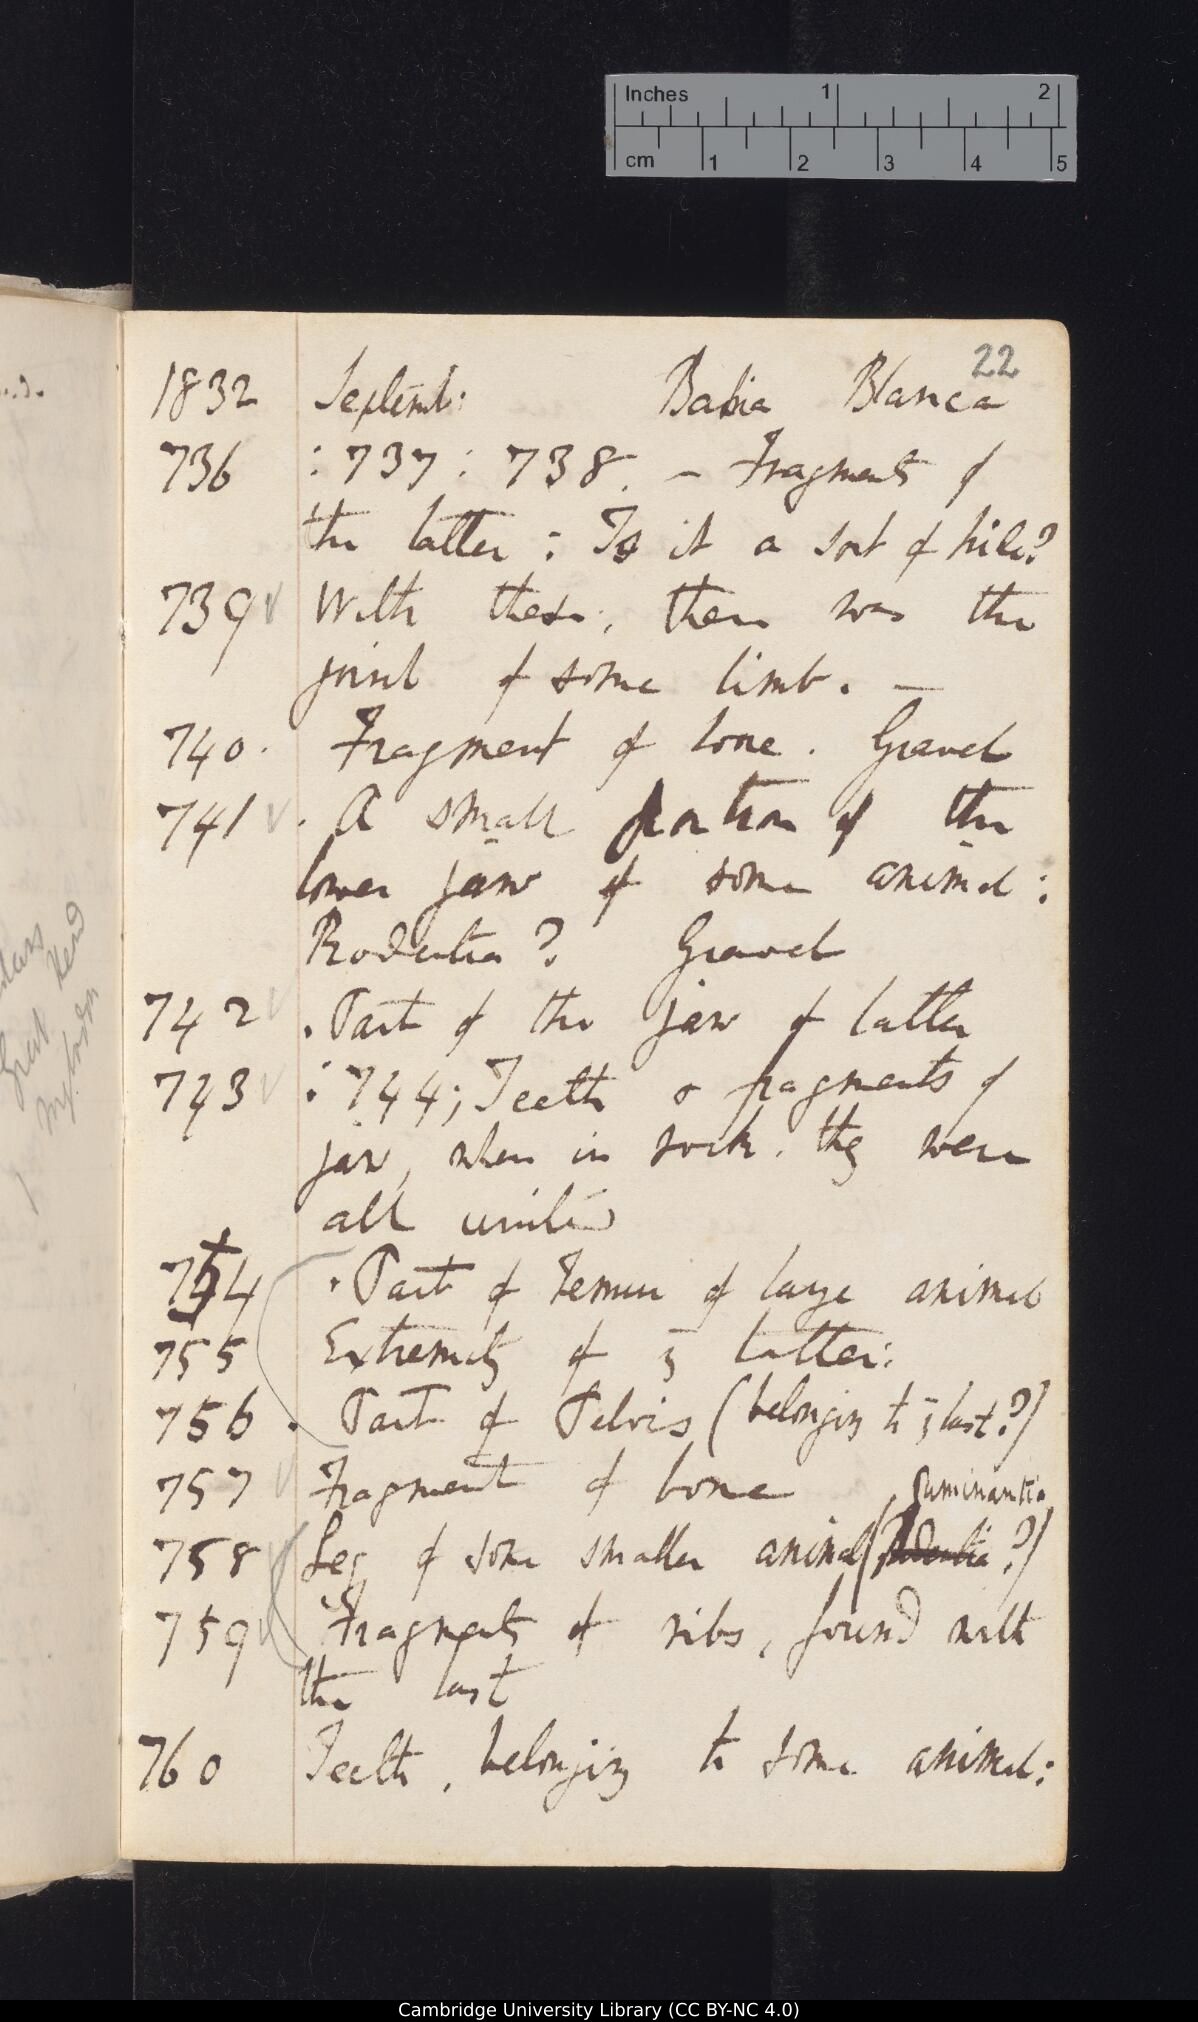 Inches 1 2
cm 1 2 3 4 5
22
1832 Septemb: Bahia Blanca
736 : 737 : 738. — Fragments of
the latter : Is it a sort of hide?
739 With these; there was the
joint of some limb. —
740. Fragment of bone. Gravel
741. A small portion of the
lower jaw of some animal:
Rodentia? Gravel
742. Part of the jaw of latter
743 : 744; Teeth & fragments of
jaw, when in rock. they were
all united
754 . Part of Femur of large animal
755 Extremity of ȳ latter:
756 . Part of Pelvis (belonging to ȳ last?)
757 Fragment of bone
ruminantia
758 Leg of some smaller animal (Rodentia?)
759 Fragments of ribs, found with
the last
760 Teeth, belonging to some animal:
Great Head
Cambridge University Library (CC BY-NC 4.0)